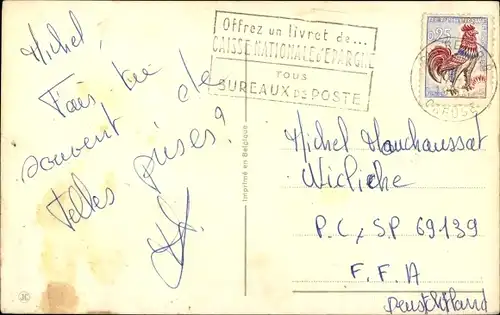 Michel,
Fais tu
souvent de
telles prises?
Offrez un livret de...
CAISSE NATIONALE d'EPARGNE
TOUS
BUREAUX DE POSTE
0,25
Imprimé en Belgique
Michel
P.C. S.P 69139
F.F.A